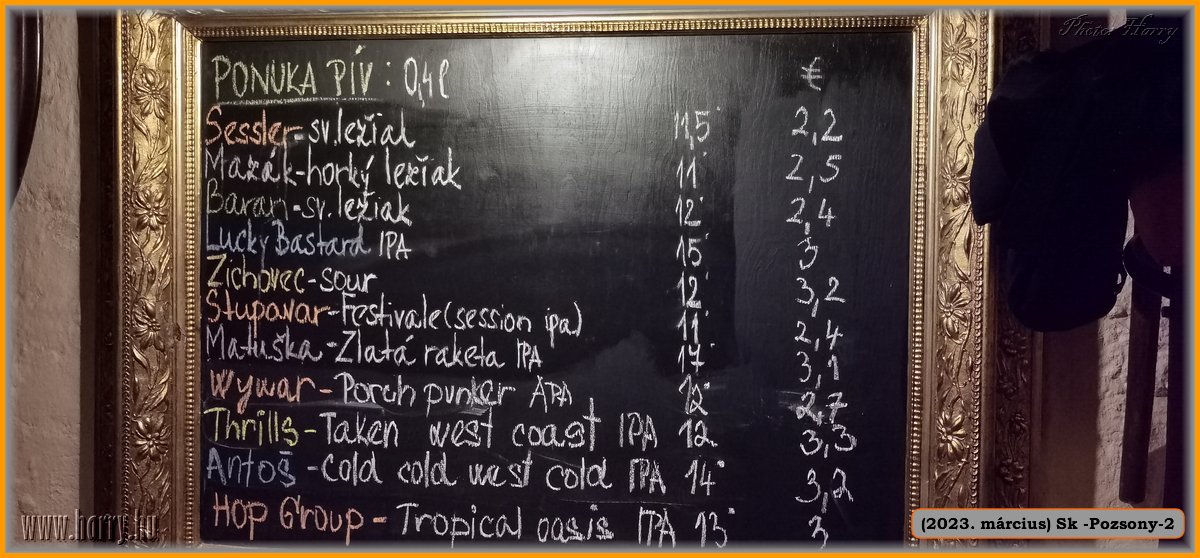 Photo Harry
PONUKA PÍV : 0,4l €
Sessler - sv. ležiak 11,5° 2,2
Mazák - horký ležiak 11° 2,5
Baran - sv. ležiak 12° 2,4
Lucky Bastard IPA 15° 3
Zichovec - sour 12° 3,2
Stupavar - Festivale (session ipa) 11° 2,4
Matuška - Zlatá raketa IPA 17° 3,1
Wywar - Porch punker APA 12° 2,7
Thrills - Taken west coast IPA 12° 3,3
Antoš - Cold cold west cold IPA 14° 3,2
Hop Group - Tropical oasis IPA 13° 3
www.harry.hu
(2023. március) Sk -Pozsony-2